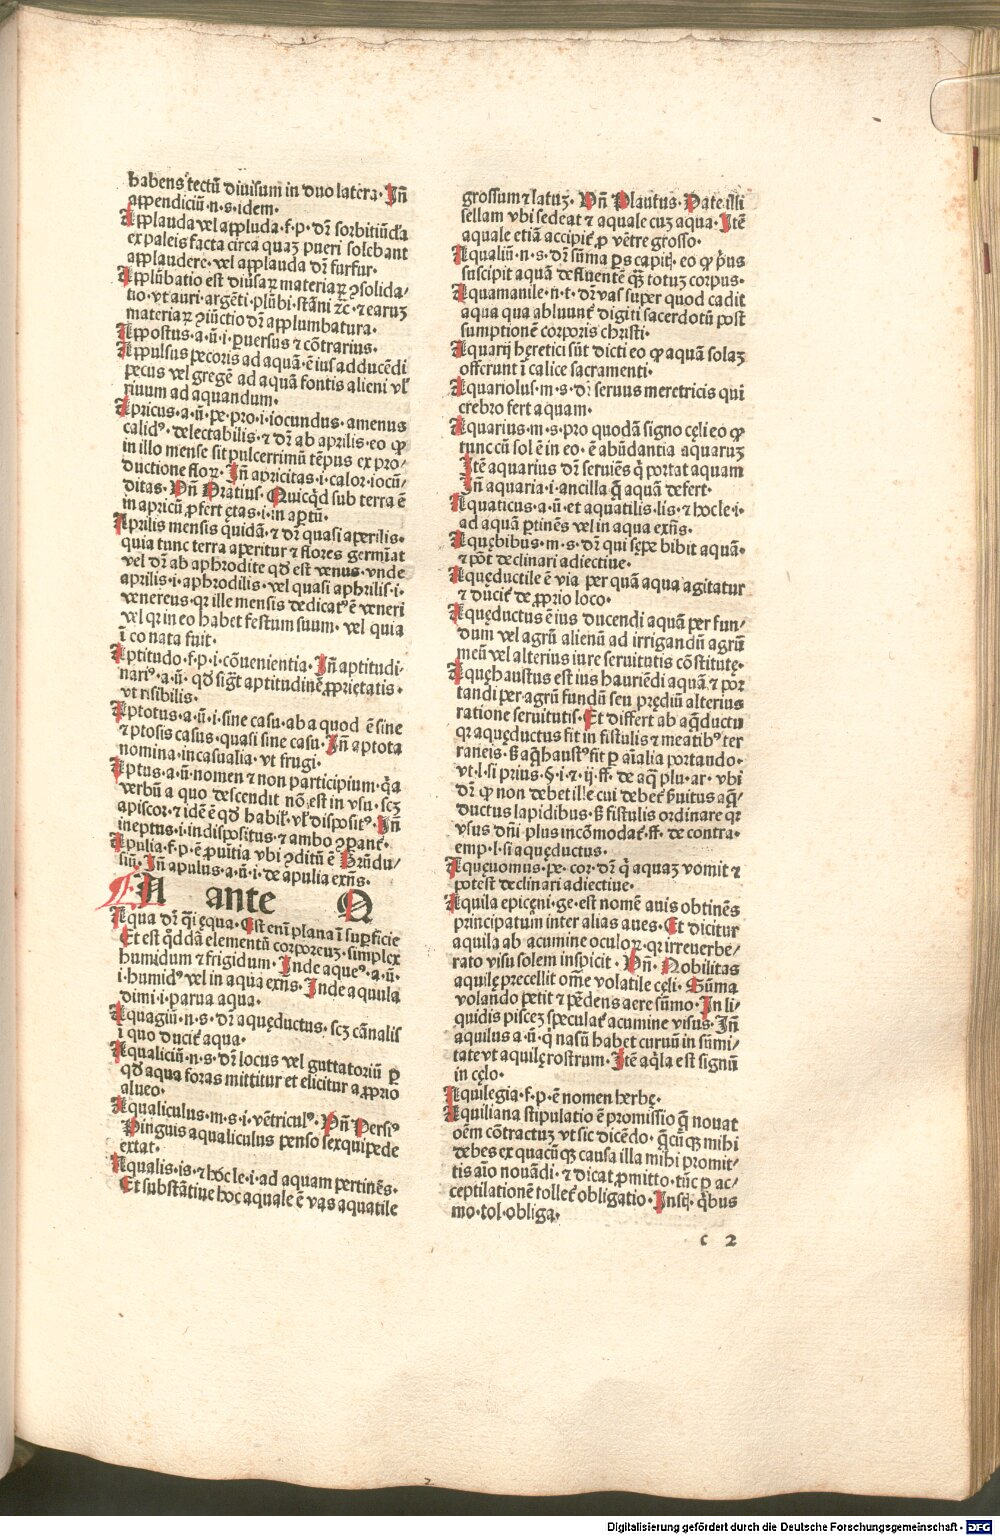 habens tectū diuisum in duo latera. Jn̄
appendiciū.n.s.idem.
Applauda vel appluda.f.p.dr̄ sorbitiūcła
ex paleis facta circa quaʒ pueri solebant
applaudere.vel applauda dr̄ furfur.
Applūbatio est diūsaꝝ materiaꝝ ↄsolida/
tio.vt auri.argēti.plūbi.stāni ⁊c.⁊ earuʒ
materiaꝝ ↄiūctio dr̄ applumbatura.
Appostus.a.ū.i.puersus ⁊ cōtrarius.
Appulsus pecoris ad aquā.ē ius adducēdi
pecus vel gregē ad aquā fontis alieni vł
riuum ad aquandum.
Apricus.a.ū.pe.pro.i.iocundus.amenus
calidꝰ.delectabilis.⁊ dr̄ ab aprilis.eo ꝙ
in illo mense sit pulcerrimū tēpus ex pro/
ductione floꝝ. Jn̄ apricitas.i.calor.iocū/
ditas. Vn̄ Oratius. Quicq̇d sub terra ē
in apricū ꝓfert ętas.i.in aptū.
Aprilis mensis quidā.⁊ dr̄ quasi aperilis.
quia tunc terra aperitur ⁊ flores germīat
vel dr̄ ab aphrodite qd̄ est venus.vnde
aprilis.i.aphrodilis.vel quasi aphrilis.i.
venereus.qr ille mensis dedicatꝰ ē veneri
vel qr in eo habet festum suum. vel quia
ī eo nata fuit.
Aptitudo.f.p.i.cōuenientia. Jn̄ aptitudi.
nariꝰ.a.ū.qd̄ sigt̄ aptitudinē ꝓprietatis.
vt risibilis.
Aptotus.a.ū.i.sine casu.ab a quod ē sine
⁊ ptosis casus.quasi sine casu. Jn̄ aptota
nomina.incasualia.vt frugi.
Aptus.a.ū.nomen ⁊ non participium.q̇a
verbū a quo descendit nō est in vsu.scʒ
apiscor.⁊ idē ē qd̄ habił.vł dispositꝰ. Jn̄
ineptus.i.indispositus.⁊ ambo ↄpant̄.
Apulia.f.p.ē ꝓuītia vbi ↄditū ē Brūdu/
siū. Jn̄ apulus.a.ū.i.de apulia exn̄s.
A ante Q
Aqua dr̄ q̄i ęqua. Est enī plana ī supficie
Et est q̇ddā elementū corporeuʒ.simplex
humidum ⁊ frigidum. Inde aqueꝰ.a.ū.
i.humidꝰ vel in aqua exn̄s. Inde aquula
dimi.i.parua aqua.
Aquagiū.n.s.dr̄ aquęductus.scʒ cānalis
ī quo ducit̄ aqua.
Aqualiciū.n.s.dr̄ locus vel guttatoriū ꝑ
qd̄ aqua foras mittitur et elicitur a ꝓprio
alueo.
Aqualiculus.m.s.i.vētriculꝰ. Vn̄ Persiꝰ
Pinguis aqualiculus penso sexquipede
extat.
Aqualis.is.⁊ hoc le.i.ad aquam pertinēs.
Et substātiue hoc aquale ē vas aquatile
grossum ⁊ latuʒ. Vn̄ Plautus. Date illi
sellam vbi sedeat ⁊ aquale cuʒ aqua. Itē
aquale etiā accipit̄ ꝓ vētre grosso.
Aqualiū.n.s.dr̄ sūma ps capit̄.eo ꝙ pus
suscipit aquā defluentē qʒ totuʒ corpus.
Aquamanile.n.t.dr̄ vas super quod cadit
aqua qua abluunt̄ digiti sacerdotū post
sumptionē corporis christi.
Aquarij hęretici sūt dicti eo ꝙ aquā solaʒ
offerunt ī calice sacramenti.
Aquariolus.m.s.dr̄ seruus meretricis qui
crebro fert aquam.
Aquarius.m.s.pro quodā signo cęli eo ꝙ
tunc cū sol ē in eo.ē abūdantia aquaruʒ
Itē aquarius dr̄ seruiēs q̇ portat aquam
Jn̄ aquaria.i.ancilla q̄ aquā defert.
Aquaticus.a.ū.et aquatilis.lis.⁊ hoc le.i.
ad aquā ꝑtinēs vel in aqua exn̄s.
Aquębibus.m.s.dr̄ qui sępe bibit aquā.
⁊ pōt declinari adiectiue.
Aquęductile ē via per quā aqua agitatur
⁊ ducit̄ de ꝓprio loco.
Aquęductus ē ius ducendi aquā per fun/
dum vel agrū alienū ad irrigandū agrū
meū vel alterius iure seruitutis cōstitutę.
Aquęhaustus est ius hauriēdi aquā.⁊ por
tandi per agrū fundū seu prędiū alterius
ratione seruitutis. Et differt ab aq̄ductu
qr aquęductus fit in fistulis ⁊ meatibꝰ ter
raneis. ß aq̄haustꝰ fit ꝑ aīalia portando.
vt.l.si prius.§.i.⁊.ij.ff.de aq̄ plu.ar.vbi
dr̄ ꝙ non debet ille cui debet̄ ßuitus aq̄/
ductus lapidibus.ß fistulis ordinare qr
vsus dn̄i plus incōmodat̄.ff.de contra.
emp.l.si aquęductus.
Aquęuomus.pe.cor.dr̄ q̇ aquaʒ vomit ⁊
potest declinari adiectiue.
Aquila epicęni.ge.est nomē auis obtinēs
principatum inter alias aues. Et dicitur
aquila ab acumine oculoꝝ.qr irreuerbe/
rato visu solem inspicit. Vn̄. Nobilitas
aquilę precellit om̄e volatile cęli. Sūma
volando petit ⁊ pēdens aere sūmo. In li/
quidis pisceʒ speculat̄ acumine visus. Jn̄
aquilus.a.ū.q̇ nasū habet curuū in sūmi/
tate vt aquilę rostrum. Itē aq̇la est signū
in cęlo.
Aquilegia.f.p.ē nomen herbę.
Aquiliana stipulatio ē promissio q̄ nouat
oēm cōtractuʒ vt sic dicēdo. q̄cūqʒ mihi
debes ex quacūqʒ causa illa mihi promit/
tis aīo nouādi.⁊ dicat ꝓmitto.tūc ꝑ ac/
ceptilationē tollet̄ obligatio. Insti. q̇bus
mo.tol.obliga.
c 2
Digitalisierung gefördert durch die Deutsche Forschungsgemeinschaft - DFG